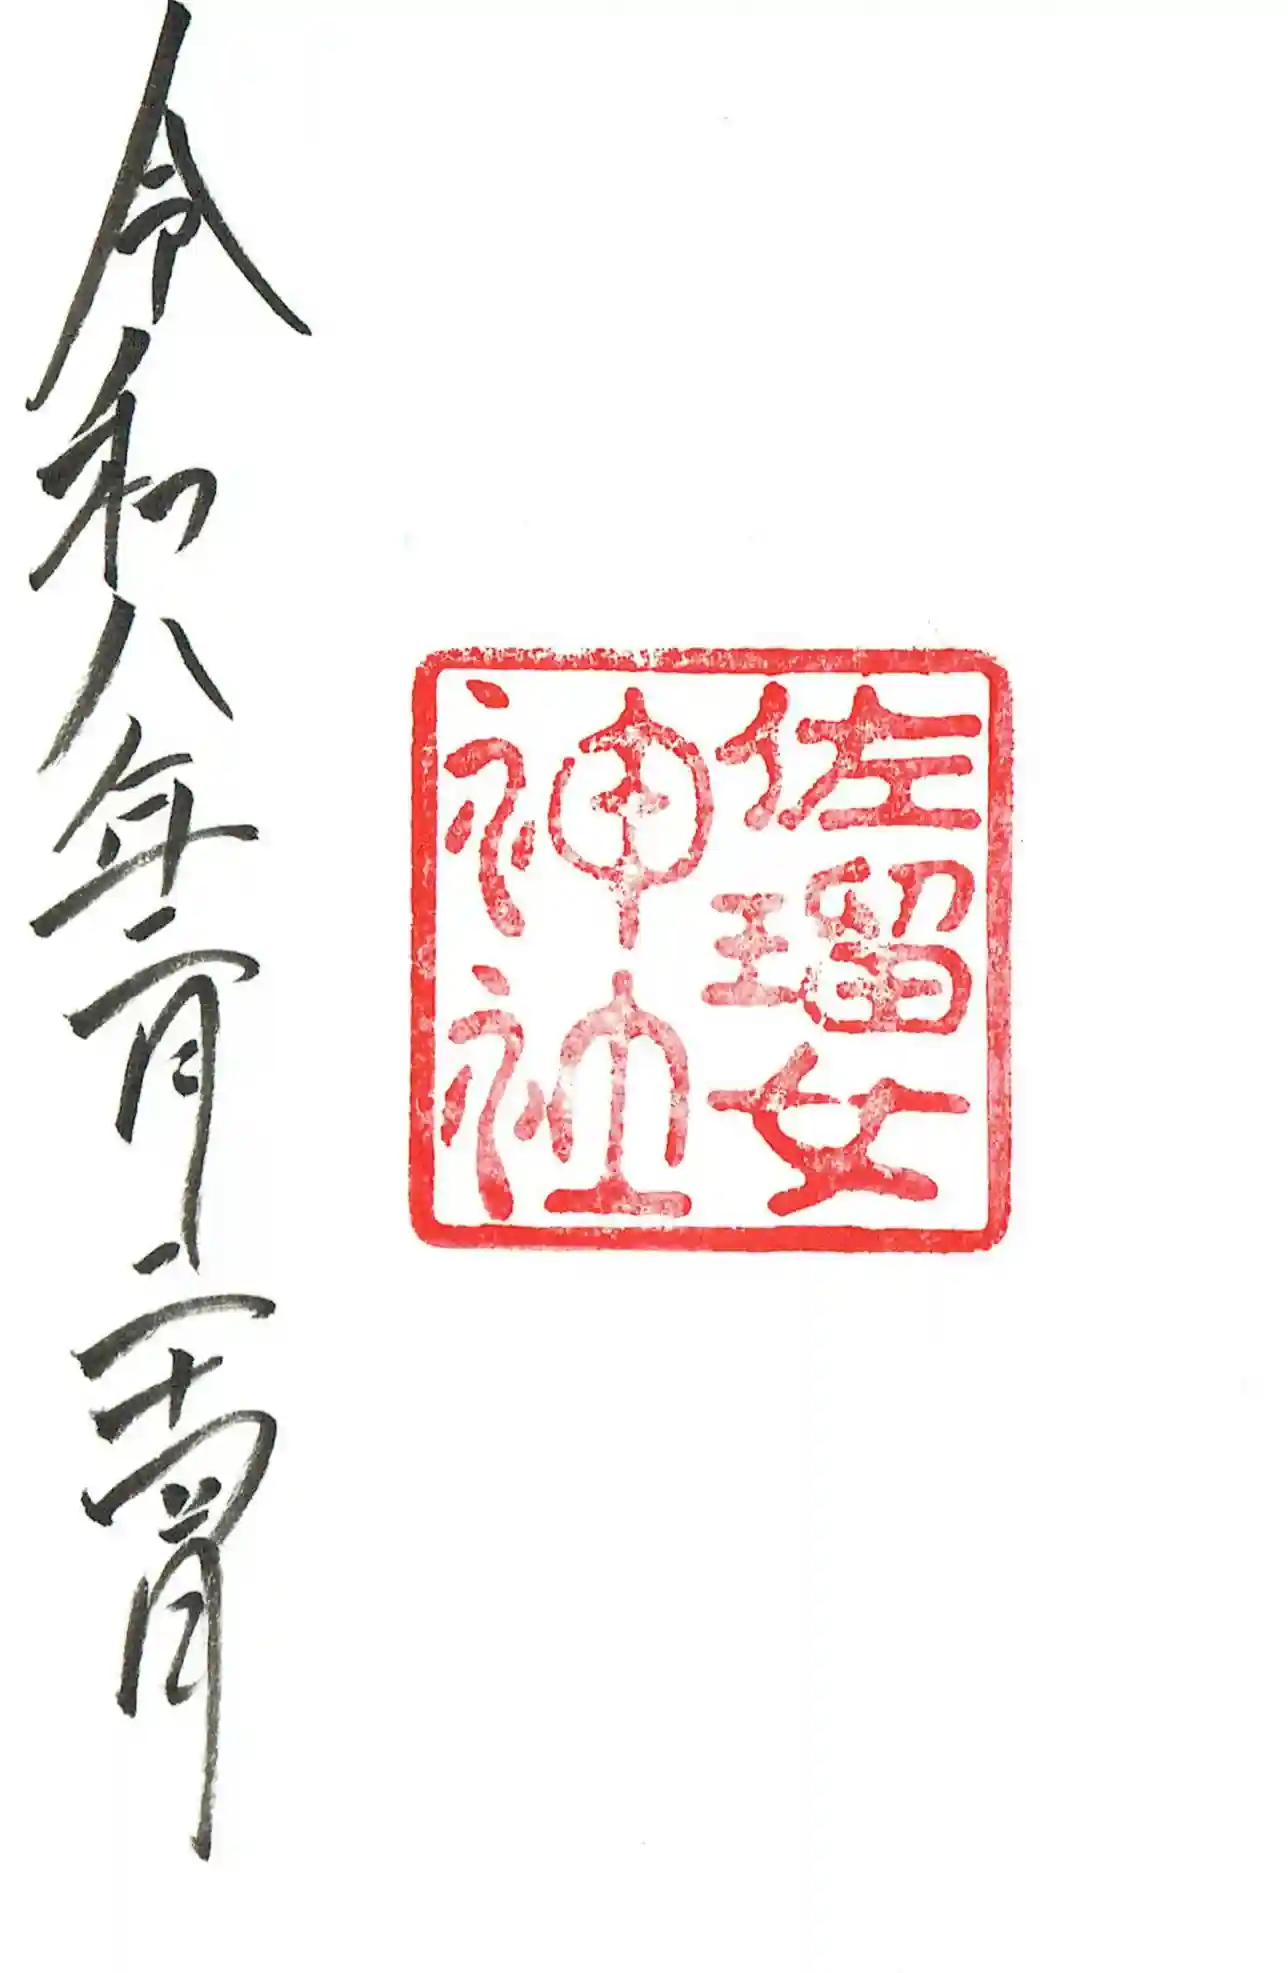 佐瑠女
神社
令和八年二月二十四日